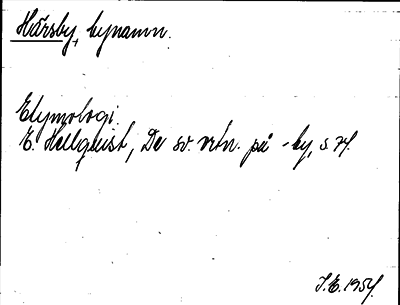 Hårsby, bynamn.
Etymologi.
E. Hellquist, De sv. ortn. på -by, s. 74.
J.E. 1954.